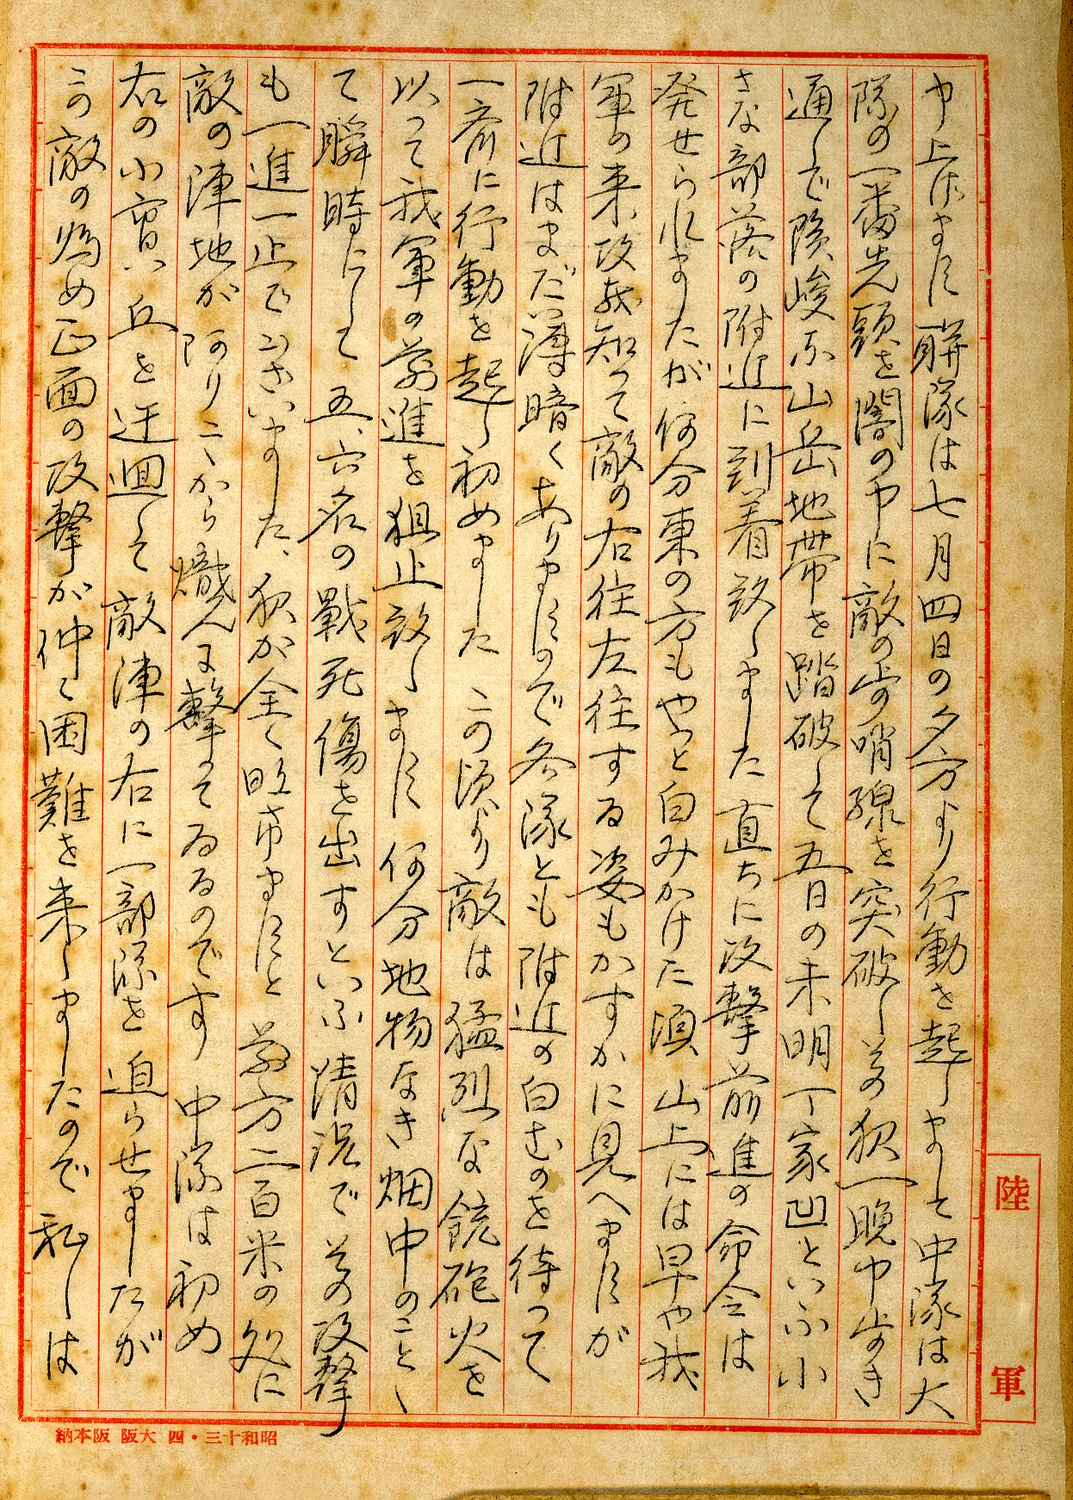 申上げます 聯隊は七月四日の夕方より行動を起しまして中隊は大
隊の一番先頭を闇の中に敵の歩哨線を突破し其の夜一晩中歩き
通しで険峻な山岳地帯を踏破して五日の未明丁家凹といふ小
さな部落の附近に到着致しました 直ちに攻撃前進の命令は
発せられましたが何分東の方もやっと白みかけた頃 山上には早や我
軍の来攻を知って敵の右往左往する姿もかすかに見へますが
附近はまだ薄暗くありますので各隊とも附近の白むのを待って
一斉に行動を起し初めました この頃より敵は猛烈な銃砲火を
以って我軍の前進を狙止致します 何分地物なき畑中のこと
て瞬時にして五、六名の戦死傷を出すといふ情況で其の攻撃
も一進一止でございました、夜が全く明けますと 前方二百米の処に
敵の陣地が阿り こゝから熾んに撃ってゐるのです 中隊は初め
右の小高い丘を迂廻して敵陣の右に一部隊を迫らせましたが
この敵の為め正面の攻撃が仲々困難を来しましたので 私しは
陸軍
昭和十三・四 大阪 阪本納